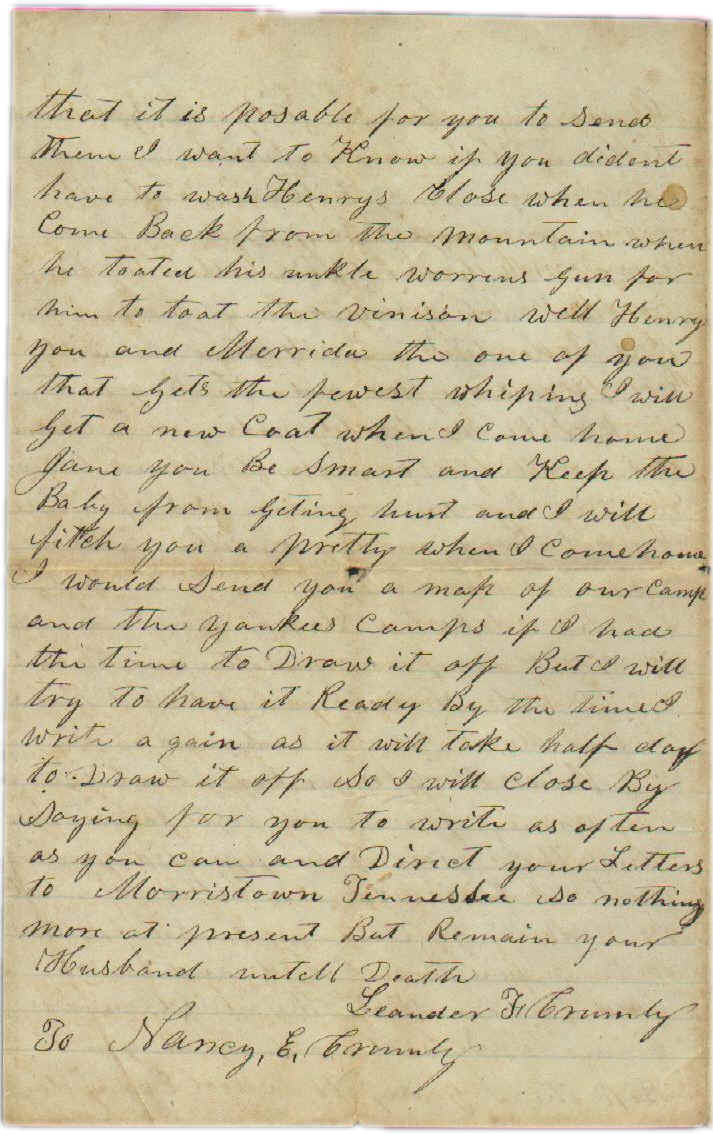 that it is posable for you to send
them I want to Know if you didont
have to wash Henrys Close when he
Come Back from the mountain when
he toated his unkle worrens gun for
him to toat the vinison well Henry
you and Merrida the one of you
that gets the fewest whiping I will
get a new Coat when I come home
Jane you Be Smart and Keep the
Baby from geting hurt and I will
fitch you a pretty when I come home
I would Send you a map of our Camp
and the yankees Camps if I had
the time to Draw it off But I will
try to have it Ready By the time I
write a gain as it will take half day
to Draw it off so I will close By
Saying for you to write as often
as you can and Direct your Letters
to Morristown Tennessee so nothing
more at present But Remain your
Husband untell Death
Leander F Crumly
To Nancy, E, Crumly